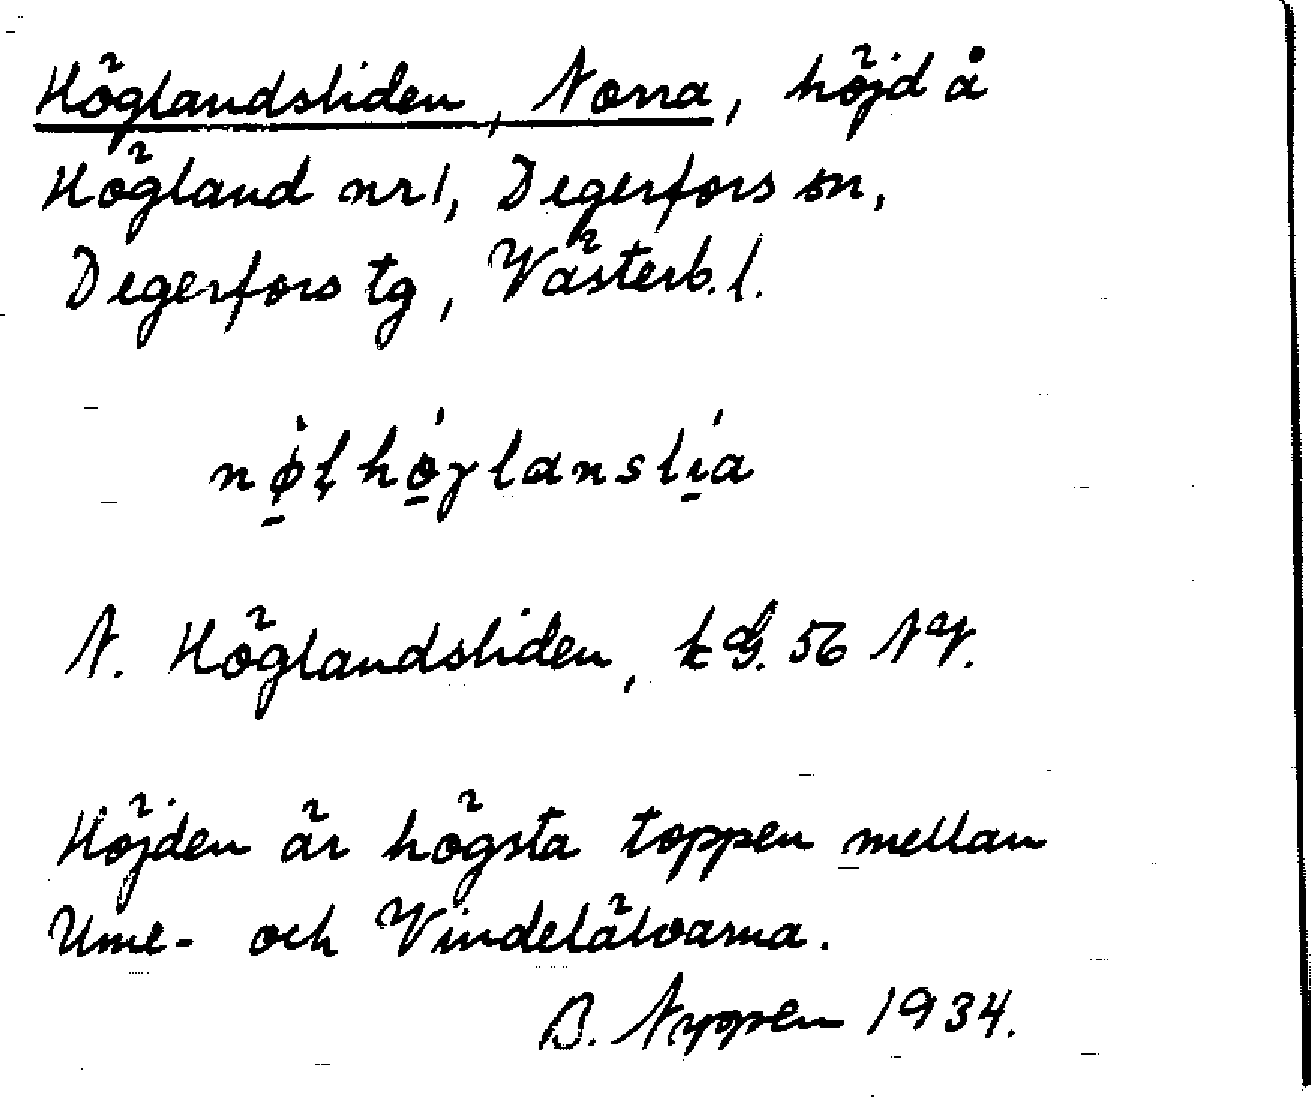 Höglandsliden, Norra, höjd å
Högland nr 1, Degerfors sn,
Degerfors tg, Västerb. l.
N. Höglandsliden, k G. 56 NV.
Höjden är högsta toppen mellan
Ume- och Vindelälvarna.
B. Nyppen 1934.